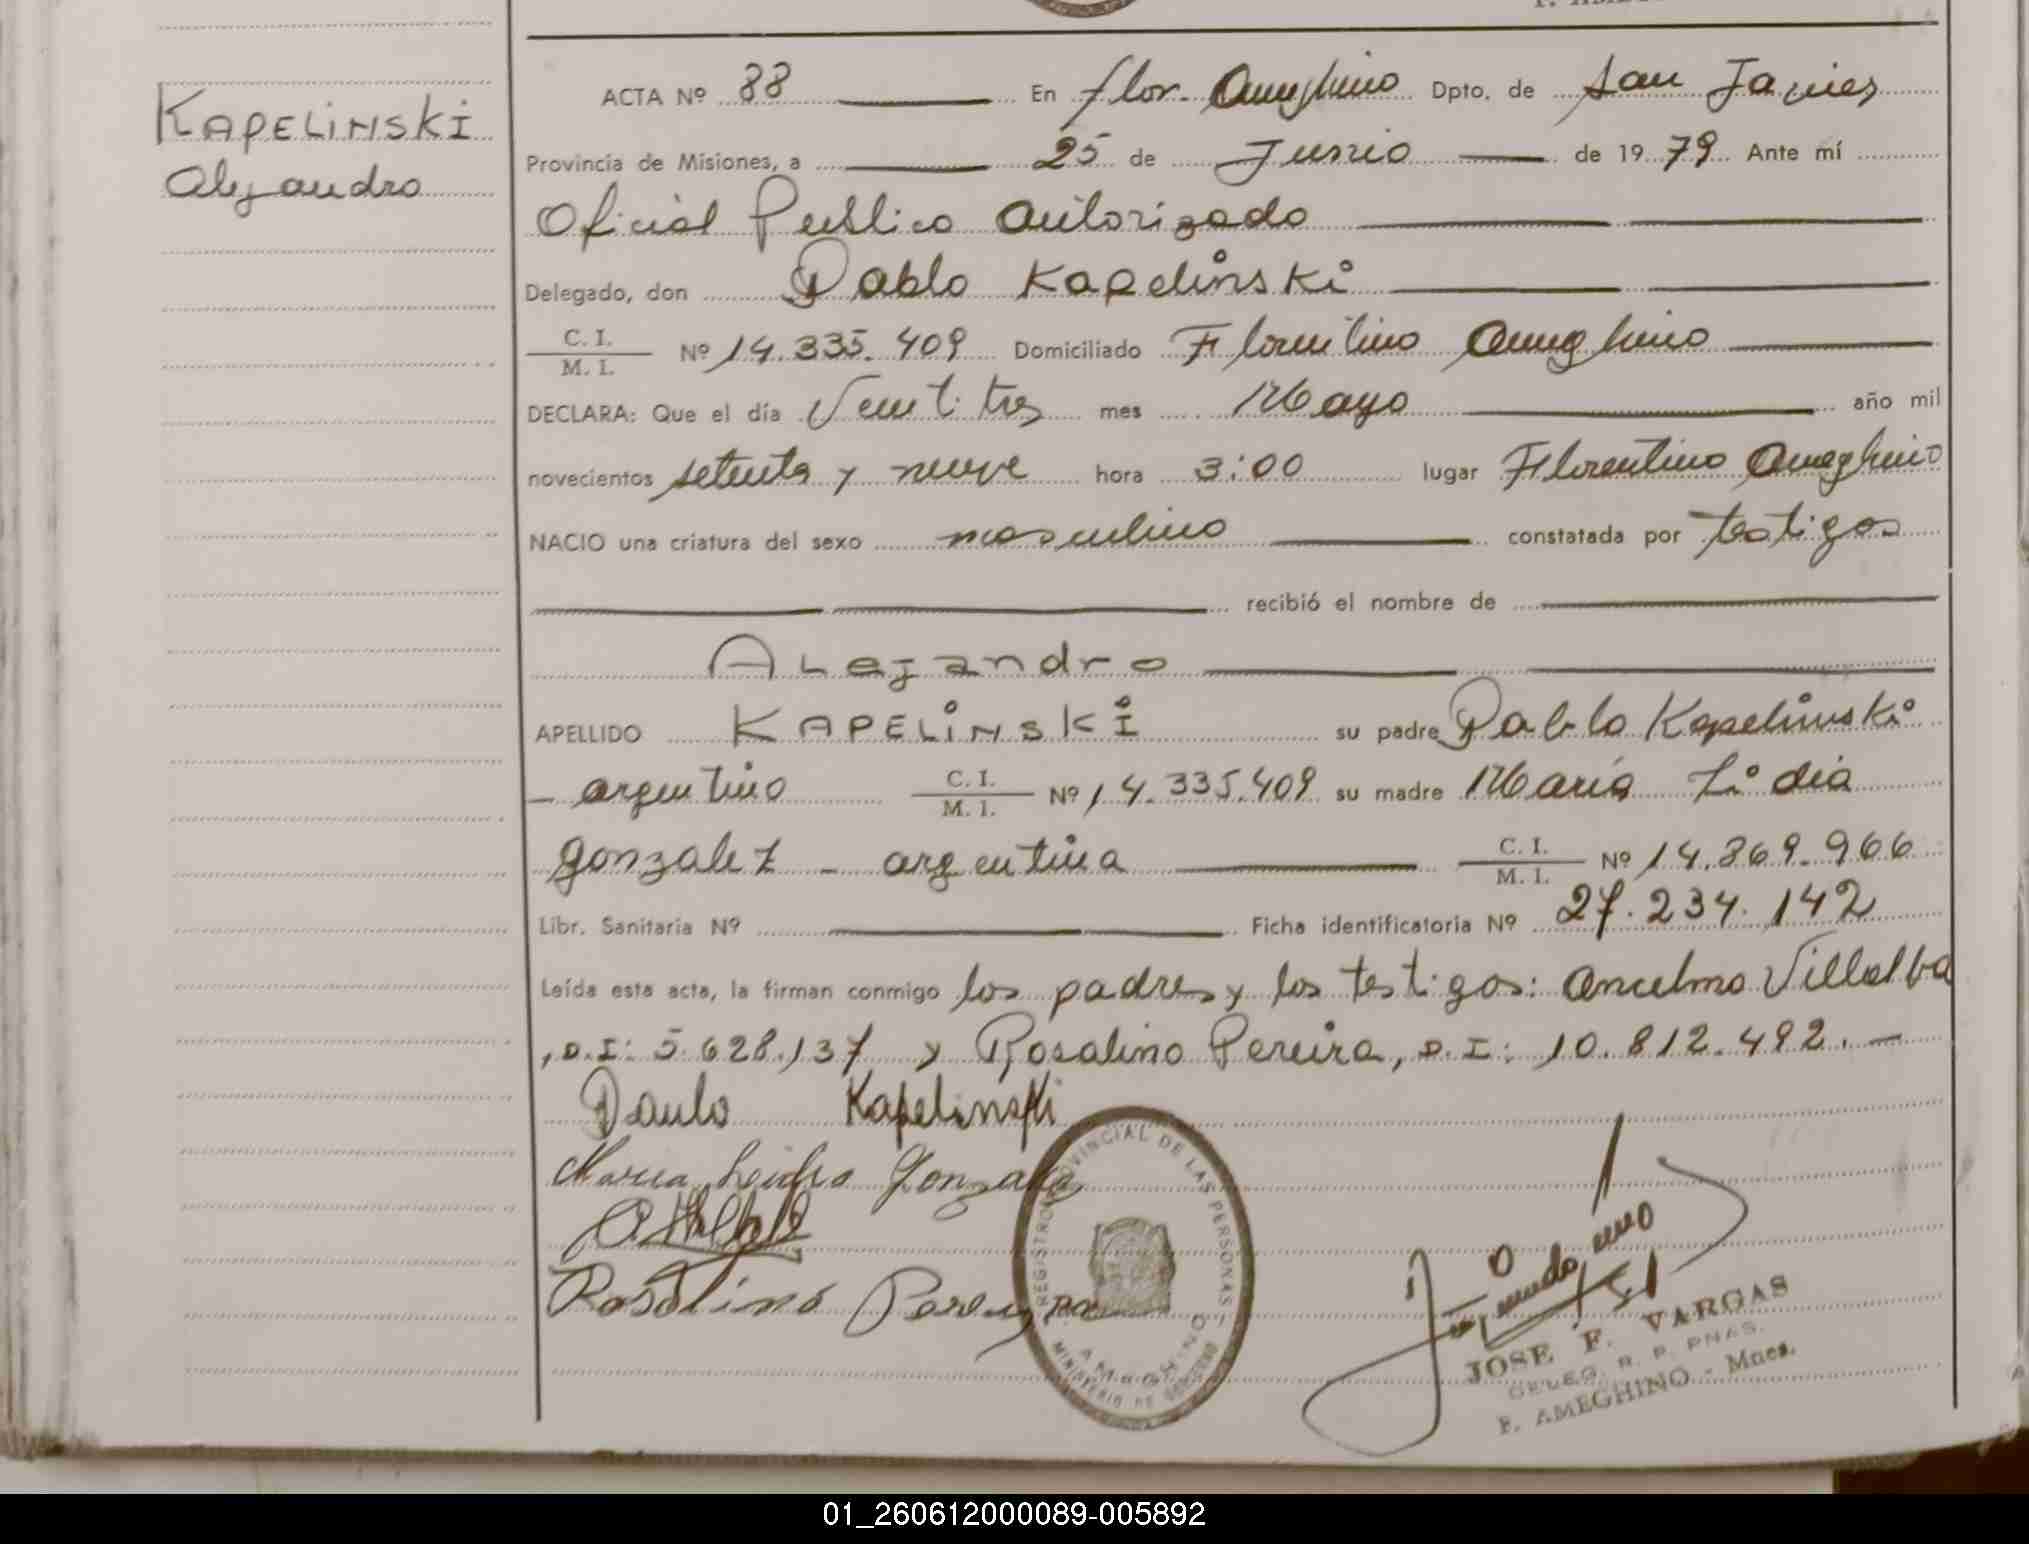 KAPELINSKI
Alejandro
ACTA Nº 88 En Flor. Ameghino Dpto. de San Javier
Provincia de Misiones, a 25 de Junio de 1979 Ante mí
Oficial Publico autorizado
Delegado, don Pablo Kapelinski
C. I.
M. I. Nº 14.335.409 Domiciliado Florentino Ameghino
DECLARA: Que el día Veintitres mes Mayo año mil
novecientos setenta y nueve hora 3:00 lugar Florentino Ameghino
NACIO una criatura del sexo masculino constatada por testigos
recibió el nombre de
Alejandro
APELLIDO KAPELINSKI su padre Pablo Kapelinski
- argentino C. I. M. I. Nº 14.335.409 su madre María Lidia
Gonzalez - argentina C. I. M. I. Nº 14.869.966
Libr. Sanitaria Nº Ficha identificatoria Nº 27.234.142
Leída esta acta, la firman conmigo los padres y los testigos: Ancelmo Villalba
, D.I: 5.628.137 y Rosalino Pereira, D.I: 10.812.492. -
Paulo Kapelinski
Maria Gonzalez
Rosalino Pereyra
REGISTRO PROVINCIAL DE LAS PERSONAS
AMEGHINO
MINISTERIO DE GOBIERNO
JOSE F. VARGAS
DELEG. R. P. PNAS.
F. AMEGHINO - Mnes.
01_260612000089-005892